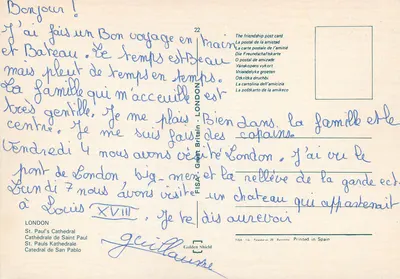 Bonjour !
J'ai fais un Bon voyage en train
et Bateau. Le temps est Beau
mais pleut de temps en temps.
La famille qui m'accueille est
tres gentille. Je me plais Bien dans la famille et le
centre. Je me suis fais des copains.
Vendredi 4 nous avons visité London. J'ai vu le
pont de London big-men et la relève de la garde ect
Lundi 7 nous avons visiter un chateau qui appartenait
à Louis XVIII. Je te dis aurevoir
guillaume
22
FISA - Great Britain - LONDON
The friendship post card
La postal de la amistad
La carte postale de l'amitié
Die Freundschaftskarte
O postal da amizade
Vriendelijke groeten
La cartolina dell'amicizia
LONDON
St. Paul's Cathedral
Cathédrale de Saint Paul
St. Pauls Kathedrale
Catedral de San Pablo
Golden Shield
Printed in Spain